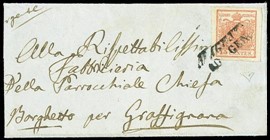 Alla Rispettabilissi
Fabbriceria
Della Parrocchiale Chiesa
Borghetto per Graffignana
GEN.